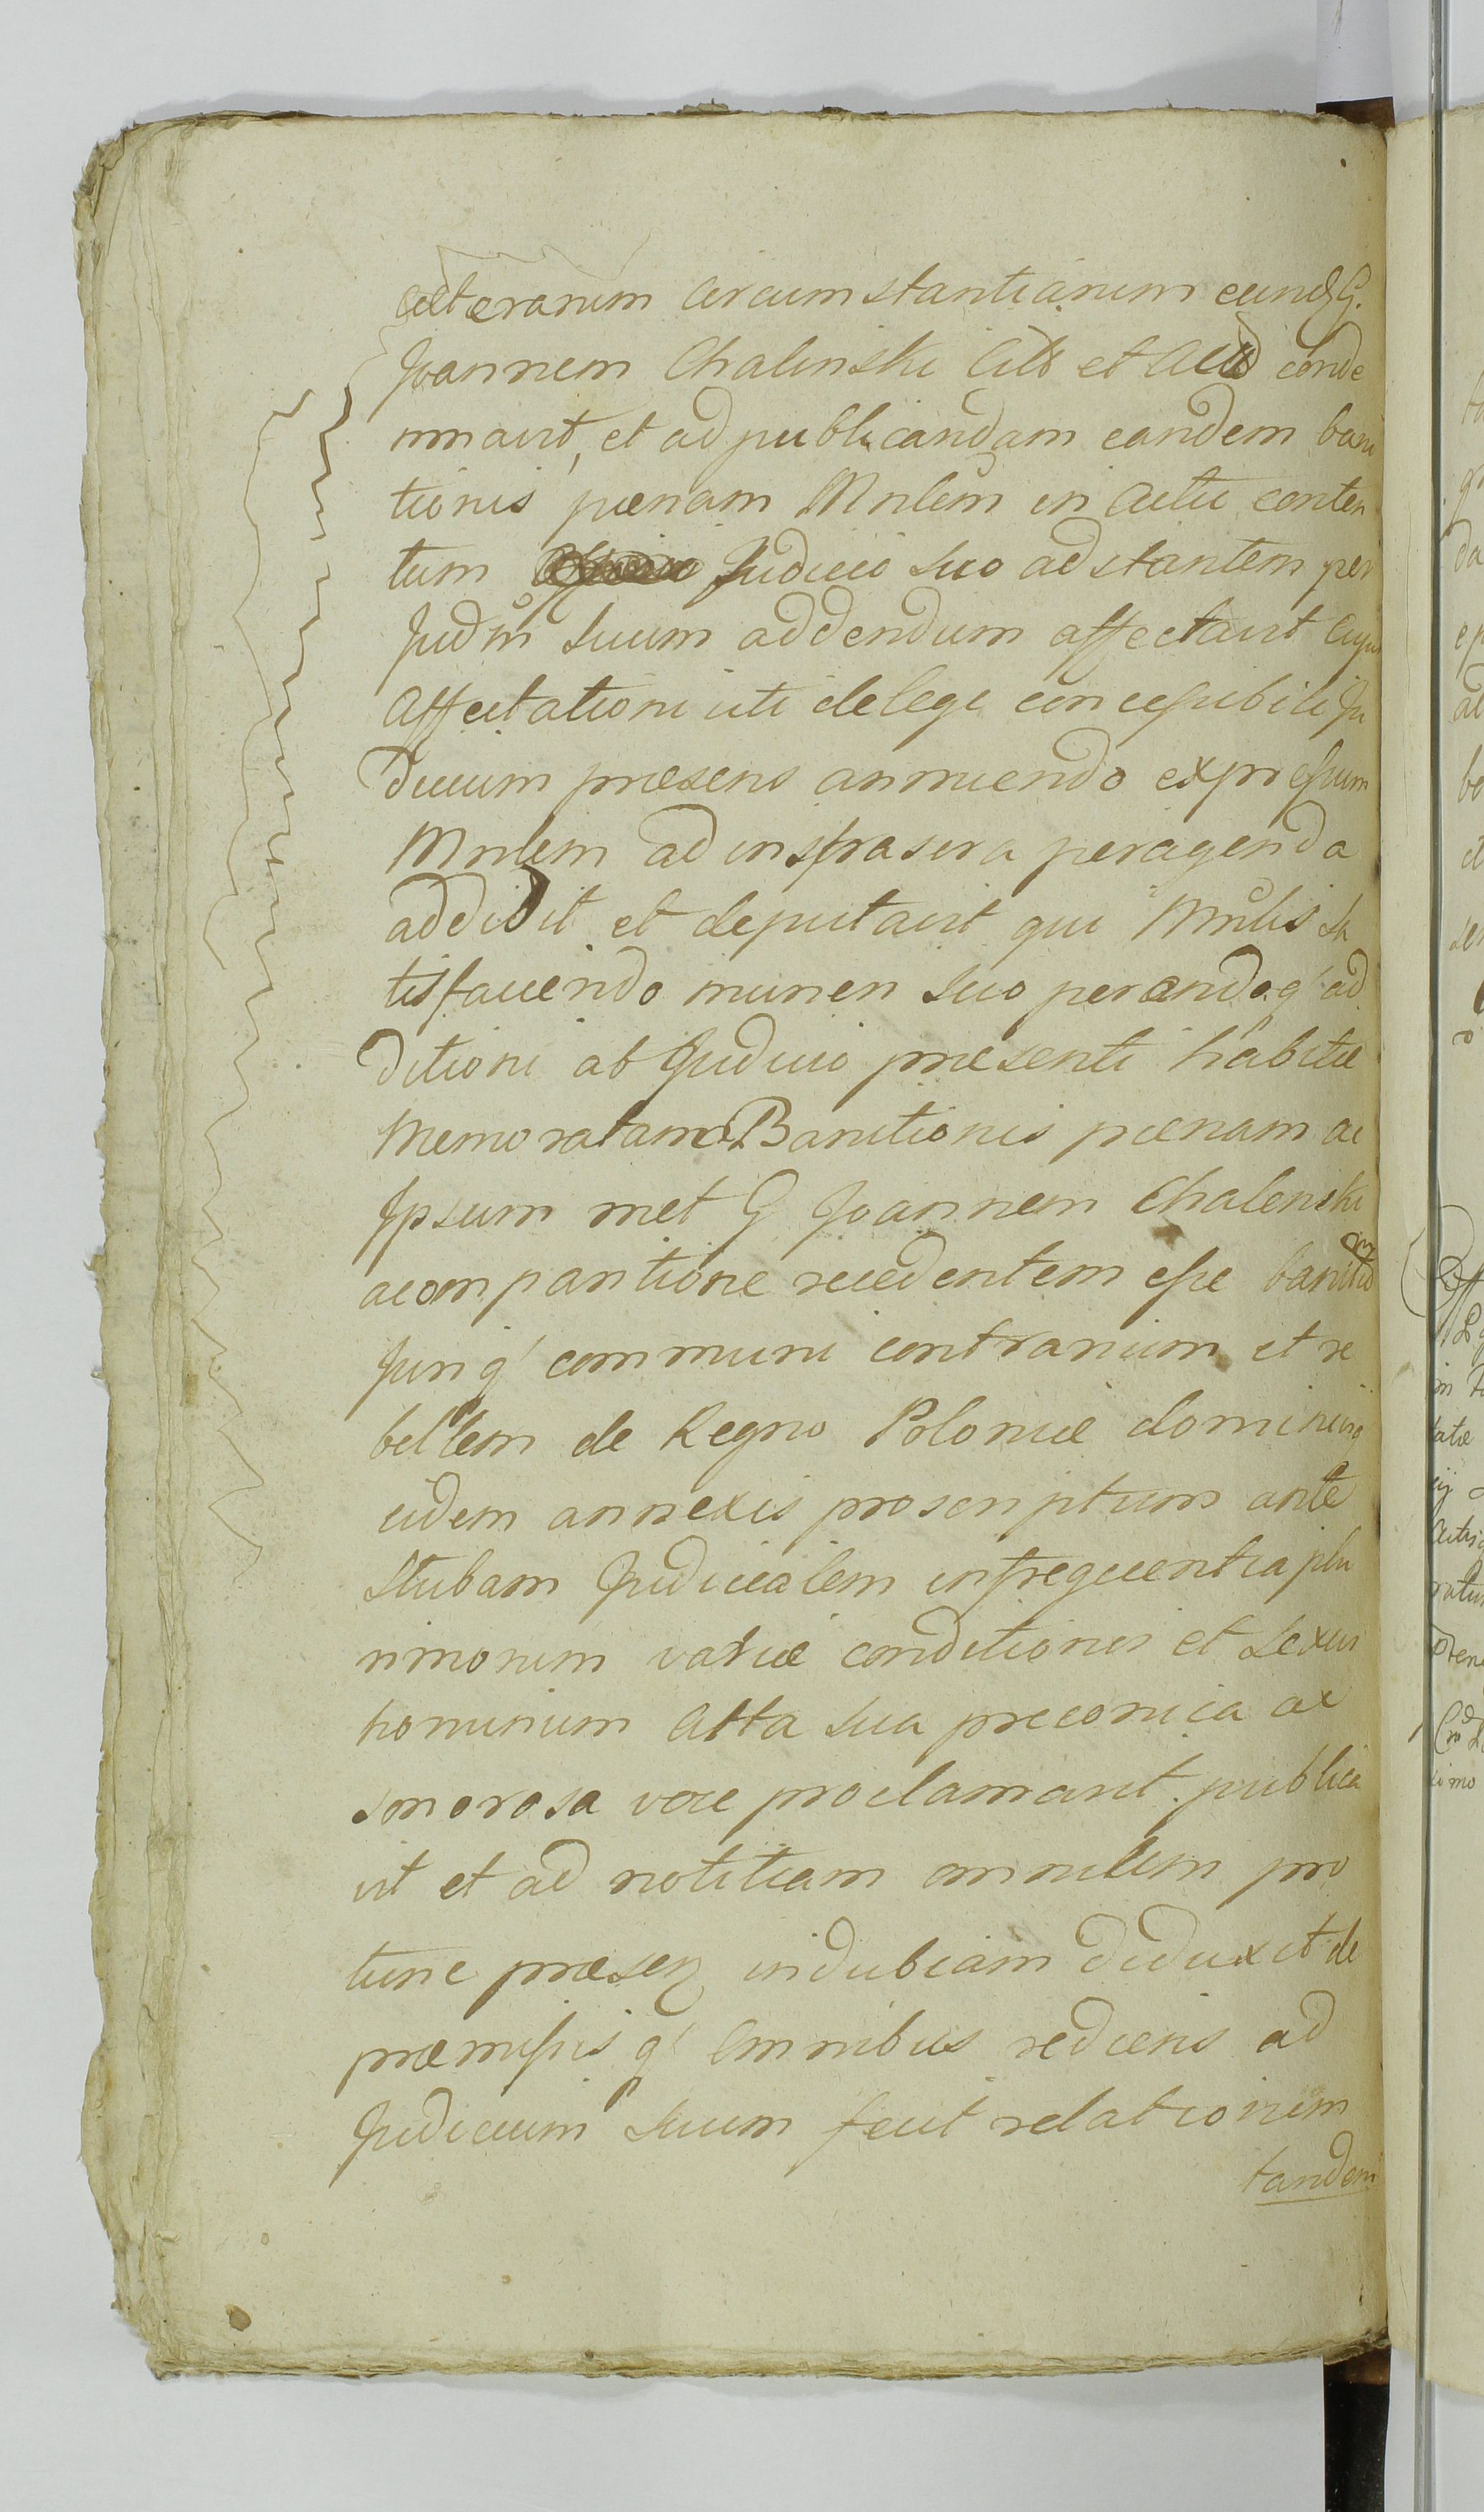 caeterarum circumstantiarum eundq G.
Joannem Chalinski Citt et conde
mnavit, et ad publicandam eandem bani
tionis pœnam Mnlem in Actu conten
tum Judicio suo adstantem per
Judm suum addendum affectavit cuju
affectationi uti de lege concessibili Ju
dicium præsens annuendo expressum
Mnlem ad infrascra peragenda
addidit et deputavit qui Mnlis sa
tisfaciendo muneri suo perendoq ad
ditioni ab Judicio præsenti habitæ
memoratam Banitionis pœnam ac
Ipsum met G Joannem Chalenski
a compantione recedentem esse banitum
Juriq communi contrarium et re
bellem de Regno Poloniæ dominiisq
eidem annexis proscriptum ante
stubam Judicialem in frequentia plu
rimorum variæ conditionis et sexus
hominum alta sua preconica ac
sonorosa voce proclamavit. publica
vit et ad notitiam omnium pro
tunc præsen indubiam deduxit de
præmissisq omnibus rediens ad
Judicium suum fecit relationem
tandem